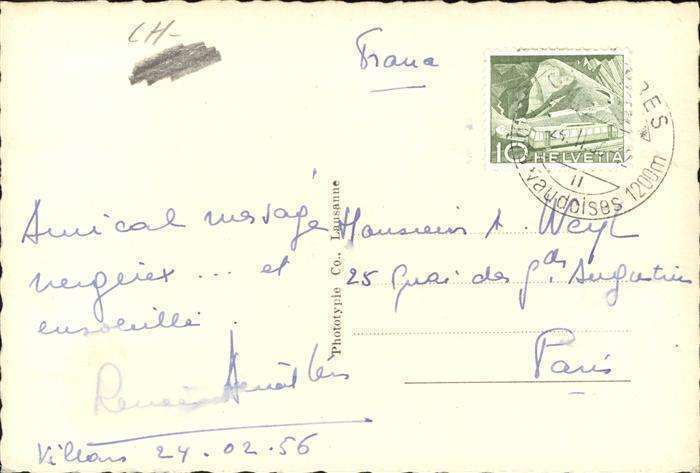 CH-
France
10 HELVETIA
Vaudoises 1200m
11
Amical message
neigeux ... et
ensoleillé.
Villars 24.02.56
Phototypie Co., Lausanne
Monsieur A. Weyl
25 Quai des gds. Augustins
Paris